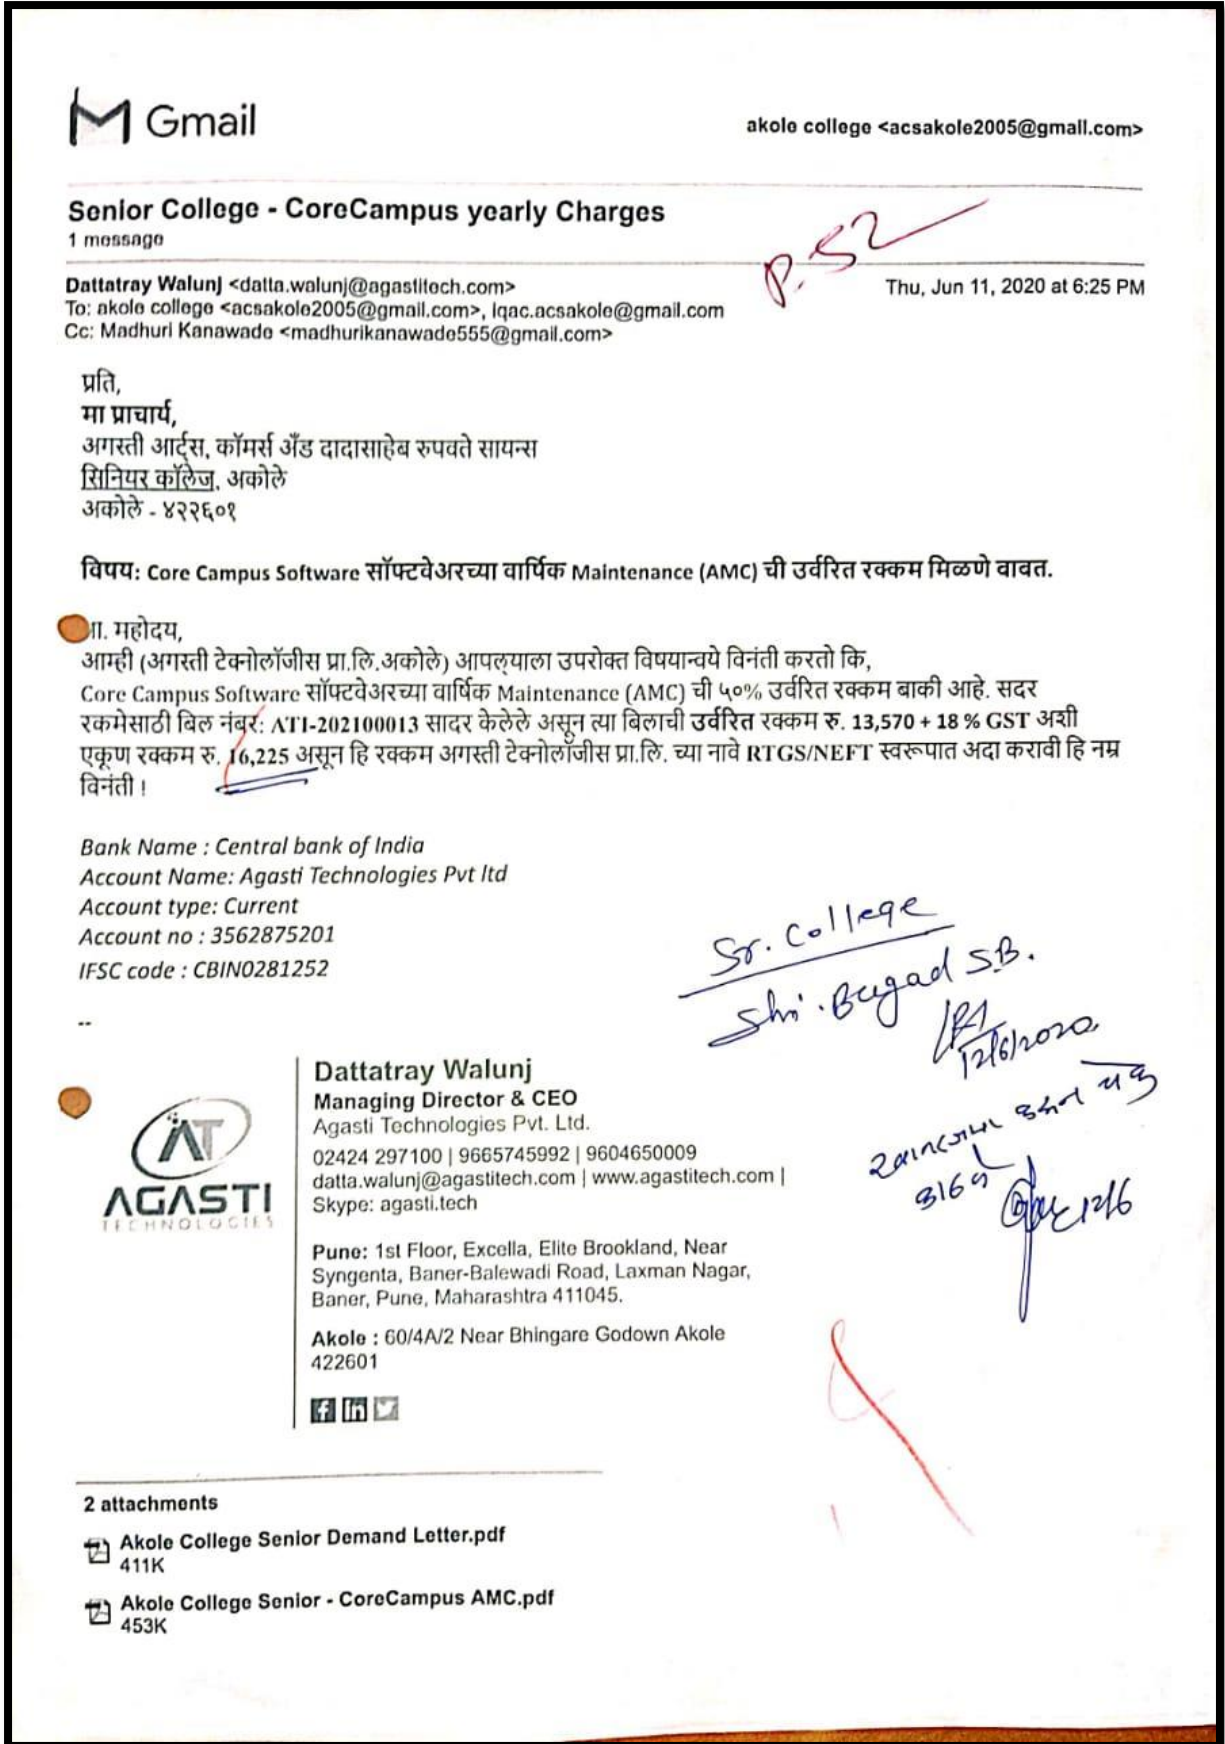 Gmail
akole college <acsakole2005@gmail.com>
Senior College - CoreCampus yearly Charges
1 message
P. 52
Dattatray Walunj <datta.walunj@agastitech.com>
Thu, Jun 11, 2020 at 6:25 PM
To: akole college <acsakole2005@gmail.com>, iqac.acsakole@gmail.com
Cc: Madhuri Kanawade <madhurikanawade555@gmail.com>
प्रति,
मा प्राचार्य,
अगस्ती आर्ट्स, कॉमर्स अँड दादासाहेब रुपवते सायन्स
सिनियर कॉलेज, अकोले
अकोले - ४२२६०१
विषय: Core Campus Software सॉफ्टवेअरच्या वार्षिक Maintenance (AMC) ची उर्वरित रक्कम मिळणे बाबत.
मा. महोदय,
आम्ही (अगस्ती टेक्नोलॉजीस प्रा.लि.अकोले) आपल्याला उपरोक्त विषयान्वये विनंती करतो कि,
Core Campus Software सॉफ्टवेअरच्या वार्षिक Maintenance (AMC) ची ५०% उर्वरित रक्कम बाकी आहे. सदर
रकमेसाठी बिल नंबर: ATI-202100013 सादर केलेले असून त्या बिलाची उर्वरित रक्कम रु. 13,570 + 18 % GST अशी
एकूण रक्कम रु. 16,225 असून हि रक्कम अगस्ती टेक्नोलॉजीस प्रा.लि. च्या नावे RTGS/NEFT स्वरूपात अदा करावी हि नम्र
विनंती !
Bank Name : Central bank of India
Account Name: Agasti Technologies Pvt ltd
Account type: Current
Account no : 3562875201
IFSC code : CBIN0281252
Sr. College
Shri. Bugad S.B.
12/6/2020
--
AT
AGASTI
TECHNOLOGIES
Dattatray Walunj
Managing Director & CEO
Agasti Technologies Pvt. Ltd.
02424 297100 | 9665745992 | 9604650009
datta.walunj@agastitech.com | www.agastitech.com |
Skype: agasti.tech
12/6
Pune: 1st Floor, Excella, Elite Brookland, Near
Syngenta, Baner-Balewadi Road, Laxman Nagar,
Baner, Pune, Maharashtra 411045.
Akole : 60/4A/2 Near Bhingare Godown Akole
422601
2 attachments
Akole College Senior Demand Letter.pdf
411K
Akole College Senior - CoreCampus AMC.pdf
453K